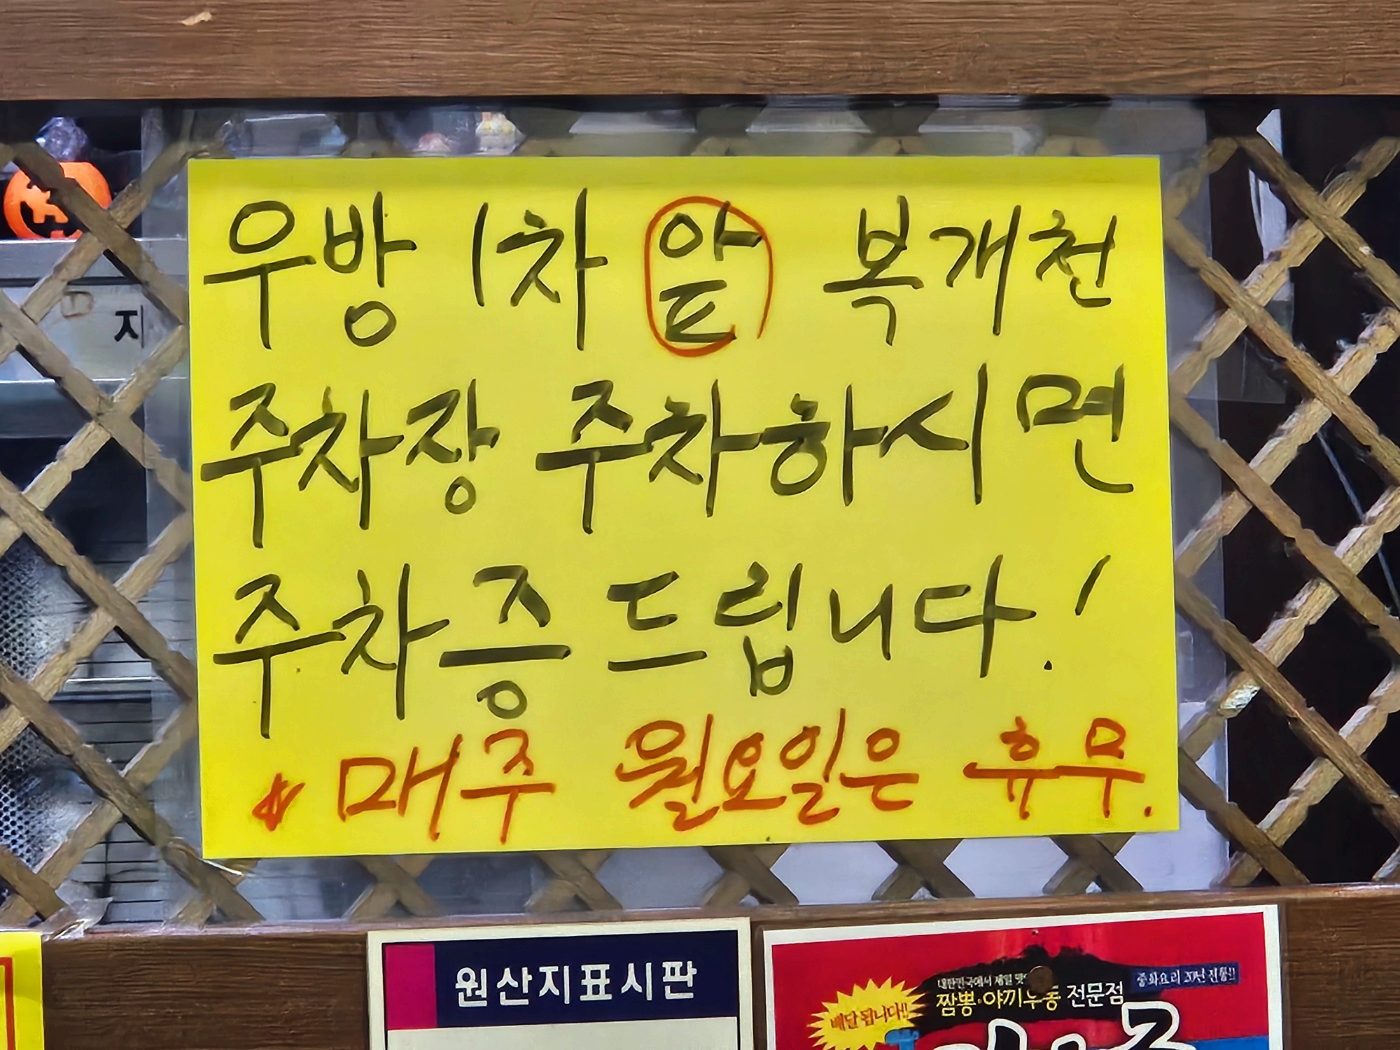 우방 1차 앞 복개천
주차장 주차하시면
주차증 드립니다!
* 매주 월요일은 휴무.
원산지표시판
대한민국에서 제일 맛
중화요리 20년 전통!!
짬뽕·야끼우동 전문점
배달 됩니다!!